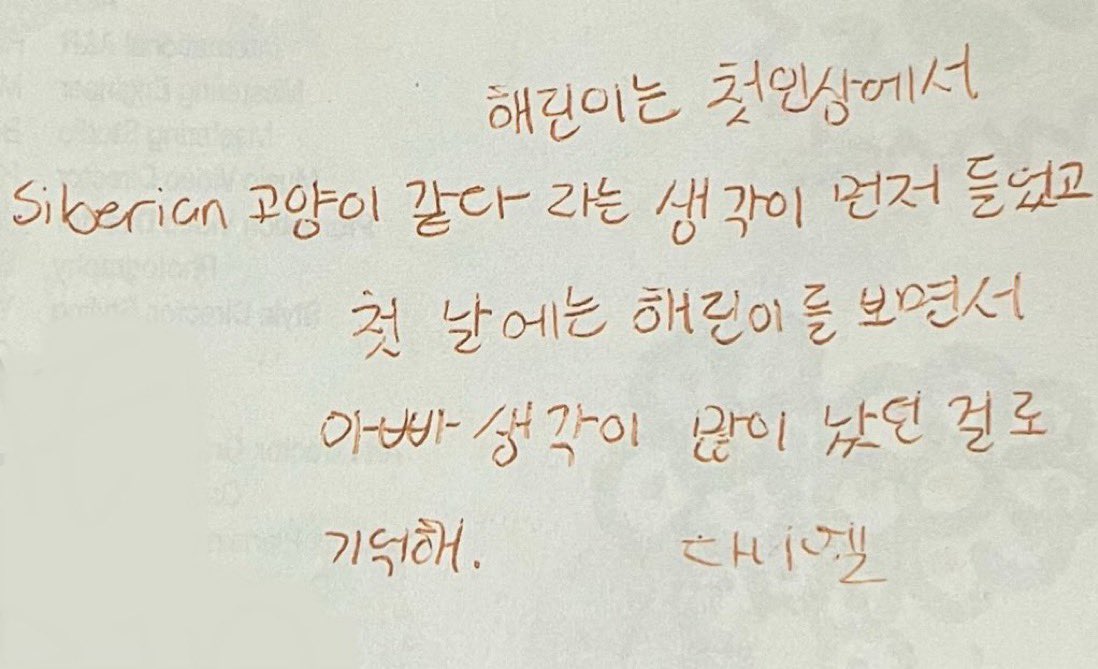 해린이는 첫인상에서
Siberian 고양이 같다 라는 생각이 먼저 들었고
첫 날에는 해린이를 보면서
아빠 생각이 많이 났던 걸로
기억해.
다니엘